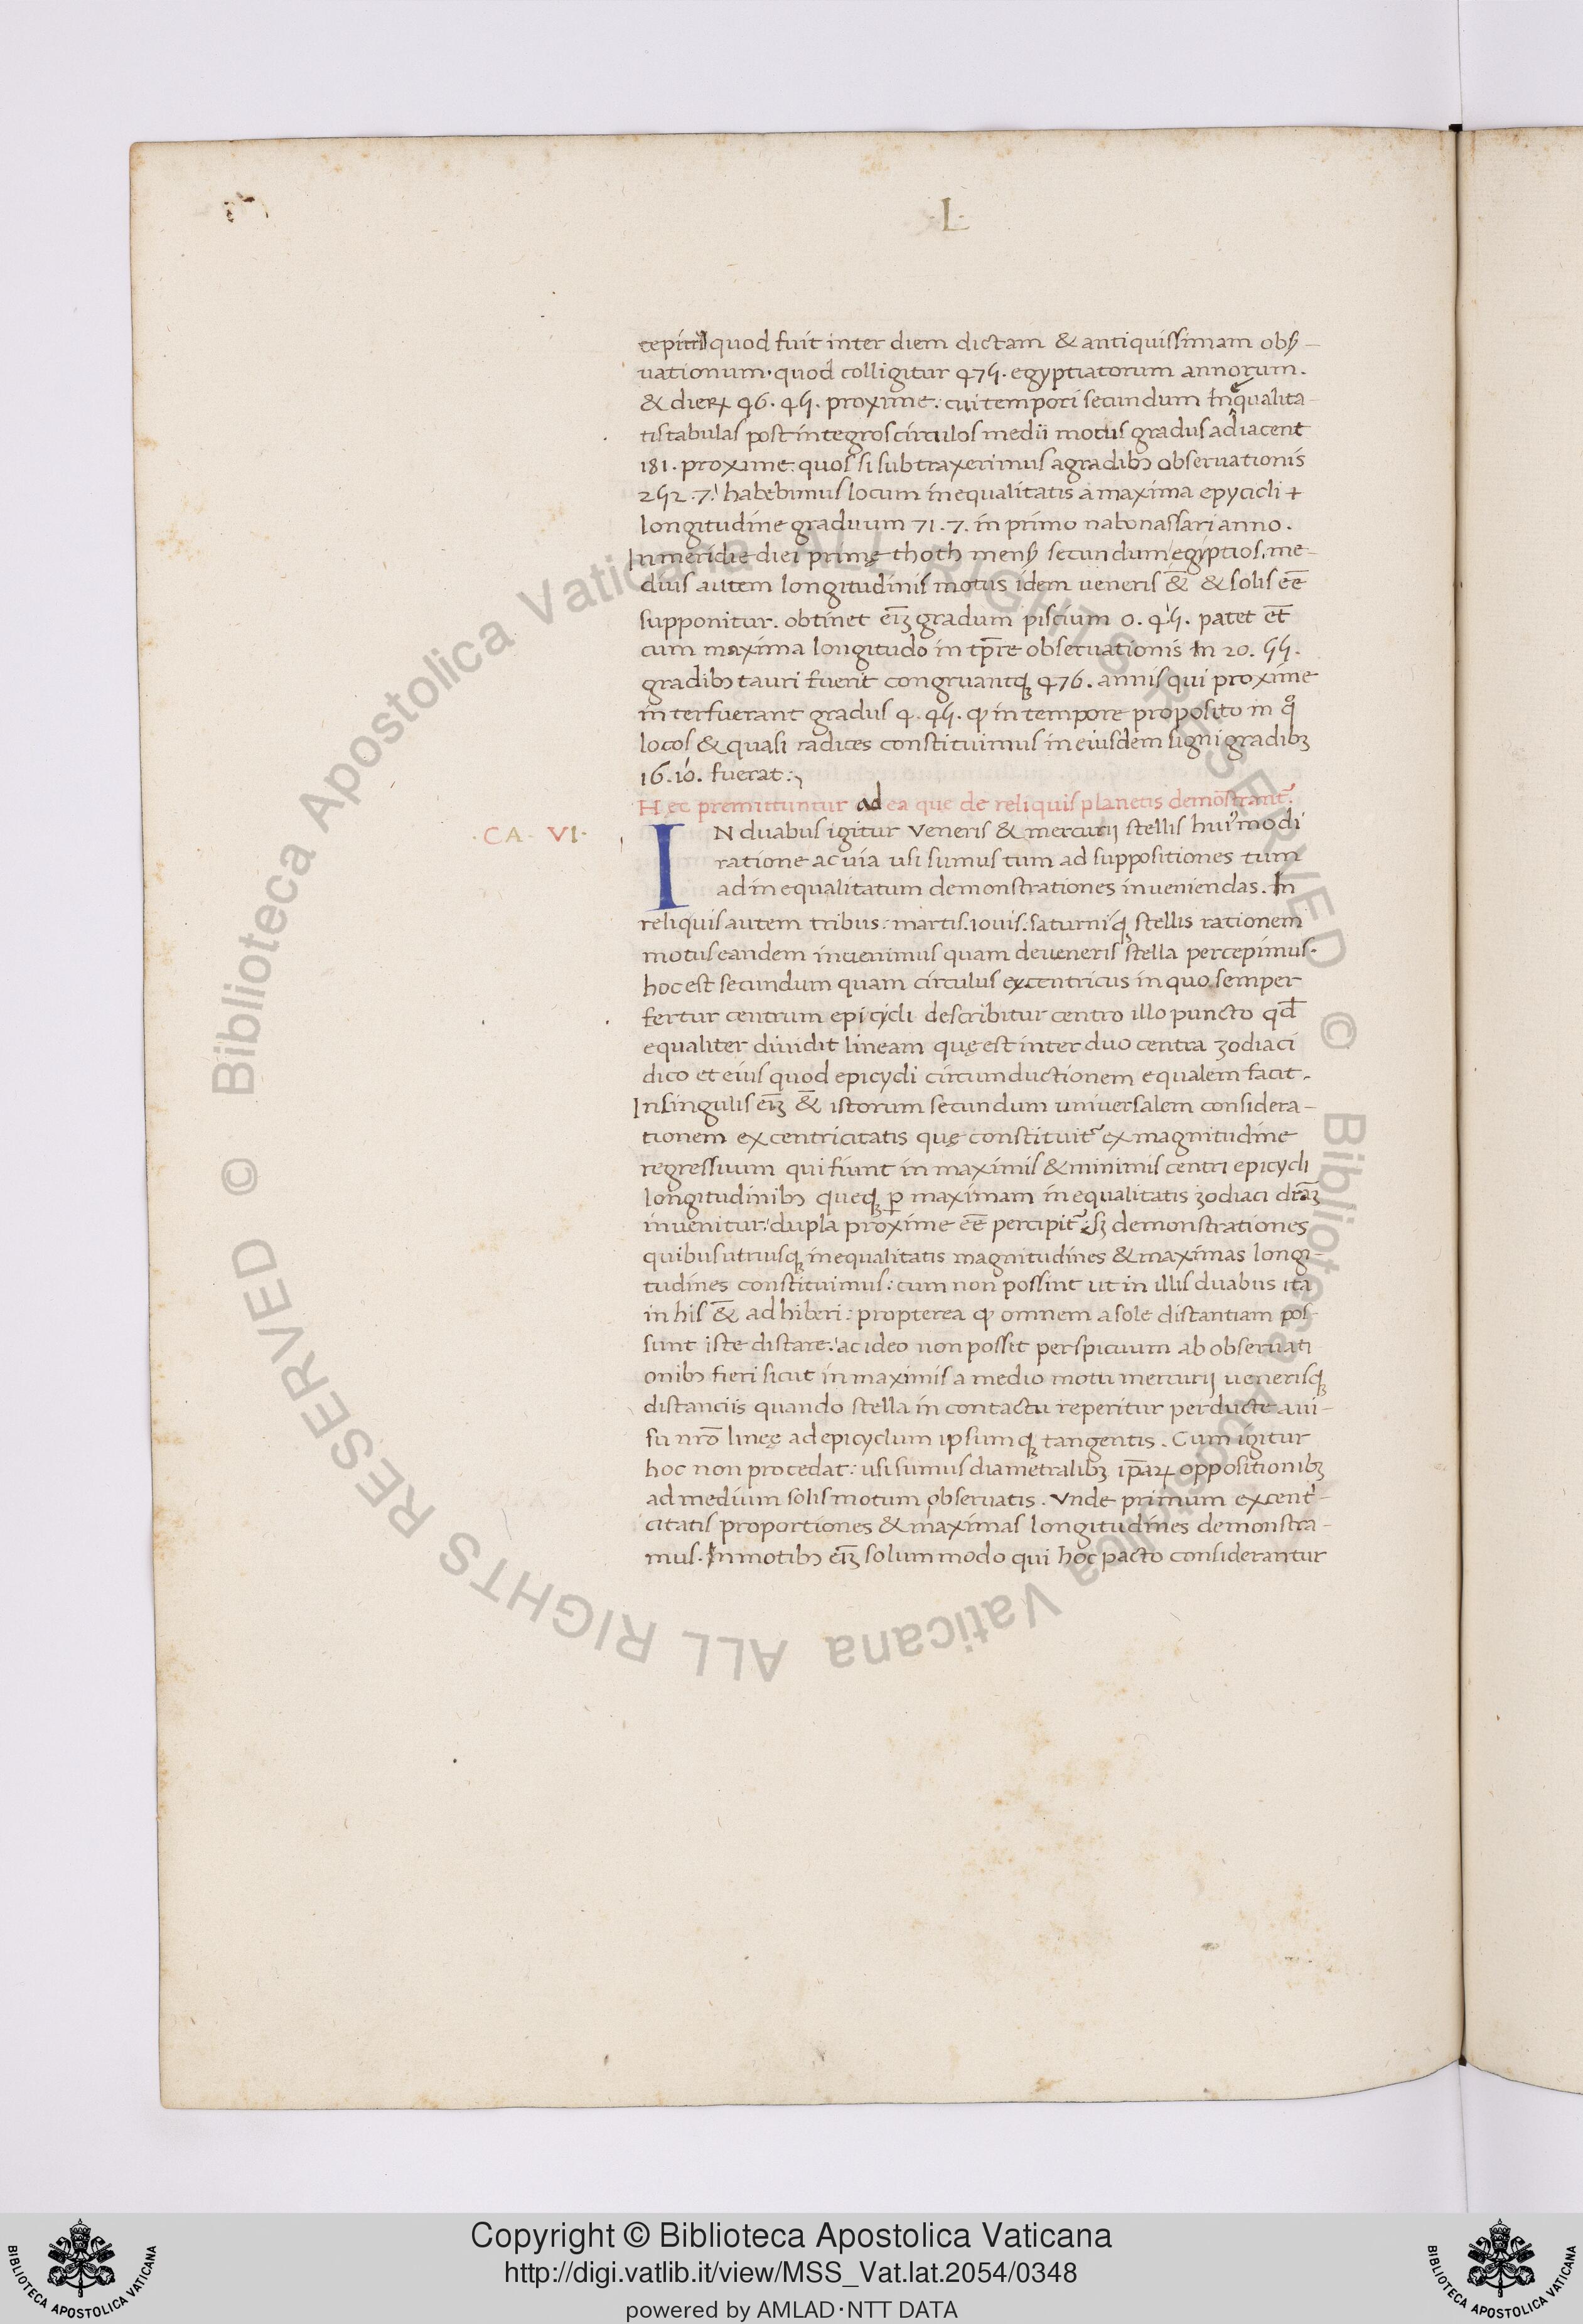 ·L·
quod fuit inter diem dictam & antiquissimam obſ̄-
uationum· quod colligitur 475. egyptiatorum annorum.
& dierꝝ 46. 45. proxime: cui tempori secundum inequalita-
tis tabulas post integros circulos medii motus gradus adiacent
181. proxime: quos si subtraxerimus a gradibꝫ obseruationis
252. 7. habebimus locum inequalitatis a maxima epycicli +
longitudine graduum 71. 7. in primo nabonassari anno.
In meridie diei primę thoth mensꝭ secundum egyptios, me-
dius autem longitudinis motus idem ueneris &̄ & solis eē
supponitur. obtinet eīꝫ gradum piscium 0. 45. patet et̄
cum maxima longitudo in tp̄re obseruationis in 20. 55.
gradibꝫ tauri fuerit congruantqꝫ 476. annis qui proxime
interfuerant gradus 4. 45. ꝙ in tempore proposito in qͦ
locos & quasi radices constituimus in eiusdem signi gradibꝫ
16. 10. fuerat:,
Hec premittuntur ad ea que de reliquis planetis demōstrant᷒.
·CA· VI·
IN duabus igitur Veneris & mercurij stellis hui᷒modi
ratione ac uia usi sumus tum ad suppositiones tum
ad inequalitatum demonstrationes inueniendas. In
reliquis autem tribus: martis. Iouis. saturniqꝫ stellis rationem
motus eandem inuenimus quam de ueneris stella percepimus.
hoc est secundum quam circulus excentricus in quo semper
fertur centrum epicicli describitur centro illo puncto qd̄
equaliter diuidit lineam quę est inter duo centra zodiaci
dico et eius quod epicycli circumductionem equalem facit.
In singulis eīꝫ &̄ istorum secundum uniuersalem considera-
tionem excentricitatis quę constituit᷒ ex magnitudine
regressuum qui fiunt in maximis & minimis centri epicycli
longitudinibꝫ queqꝫ ꝑ maximam inequalitatis zodiaci dr̄aꝫ
inuenitur: dupla proxime eē percipit᷒. sꝫ demonstrationes
quibus utriusqꝫ inequalitatis magnitudines & maximas longi-
tudines constituimus: cum non possint ut in illis duabus ita
in his &̄ adhiberi: propterea ꝙ omnem a sole distantiam pos-
sunt iste distare: ac ideo non posset perspicuum ab obseruati
onibꝫ fieri sicut in maximis a medio motu mercurij uenerisqꝫ
distanciis quando stella in contactu reperitur perducte a ui-
su nr̄o linęę ad epicyclum ipsumqꝫ tangentis. Cum igitur
hoc non procedat: usi sumus diametralibꝫ ip̄arꝝ oppositionibꝫ
ad medium solis motum obseruatis. Vnde primum excent'-
citatis proportiones & maximas longitudines demonstra-
mus. In motibꝫ eīꝫ solummodo qui hoc pacto considerantur
© Biblioteca Apostolica Vaticana ALL RIGHTS RESERVED © Biblioteca Apostolica Vaticana ALL RIGHTS RESERVED
Copyright © Biblioteca Apostolica Vaticana
http://digi.vatlib.it/view/MSS_Vat.lat.2054/0348
powered by AMLAD·NTT DATA
BIBLIOTECA APOSTOLICA VATICANA
BIBLIOTECA APOSTOLICA VATICANA